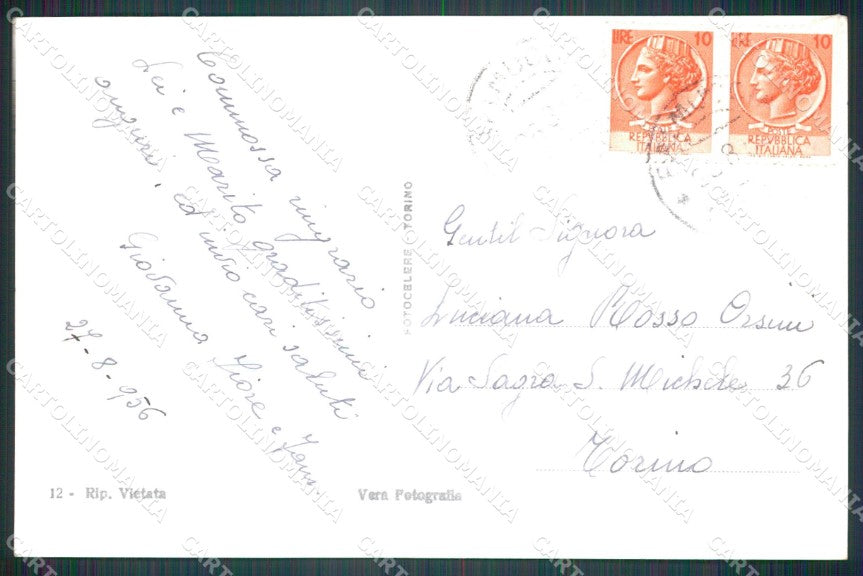 Commossa ringrazio
Lei e Marito graditissimi
auguri. ed invio cari saluti
Giovanna Fiore e
27-8-956
12 - Rip. Vietata
Vera Fotografia
FOTOCELERE TORINO
LIRE 10
LIRE 10
POSTE
REPVBBLICA
ITALIANA
POSTE
REPVBBLICA
ITALIANA
Gentil Signora
Luciana Rosso Orsini
Via Sagra S. Michele 36
Torino
CARTOLINOMANIA